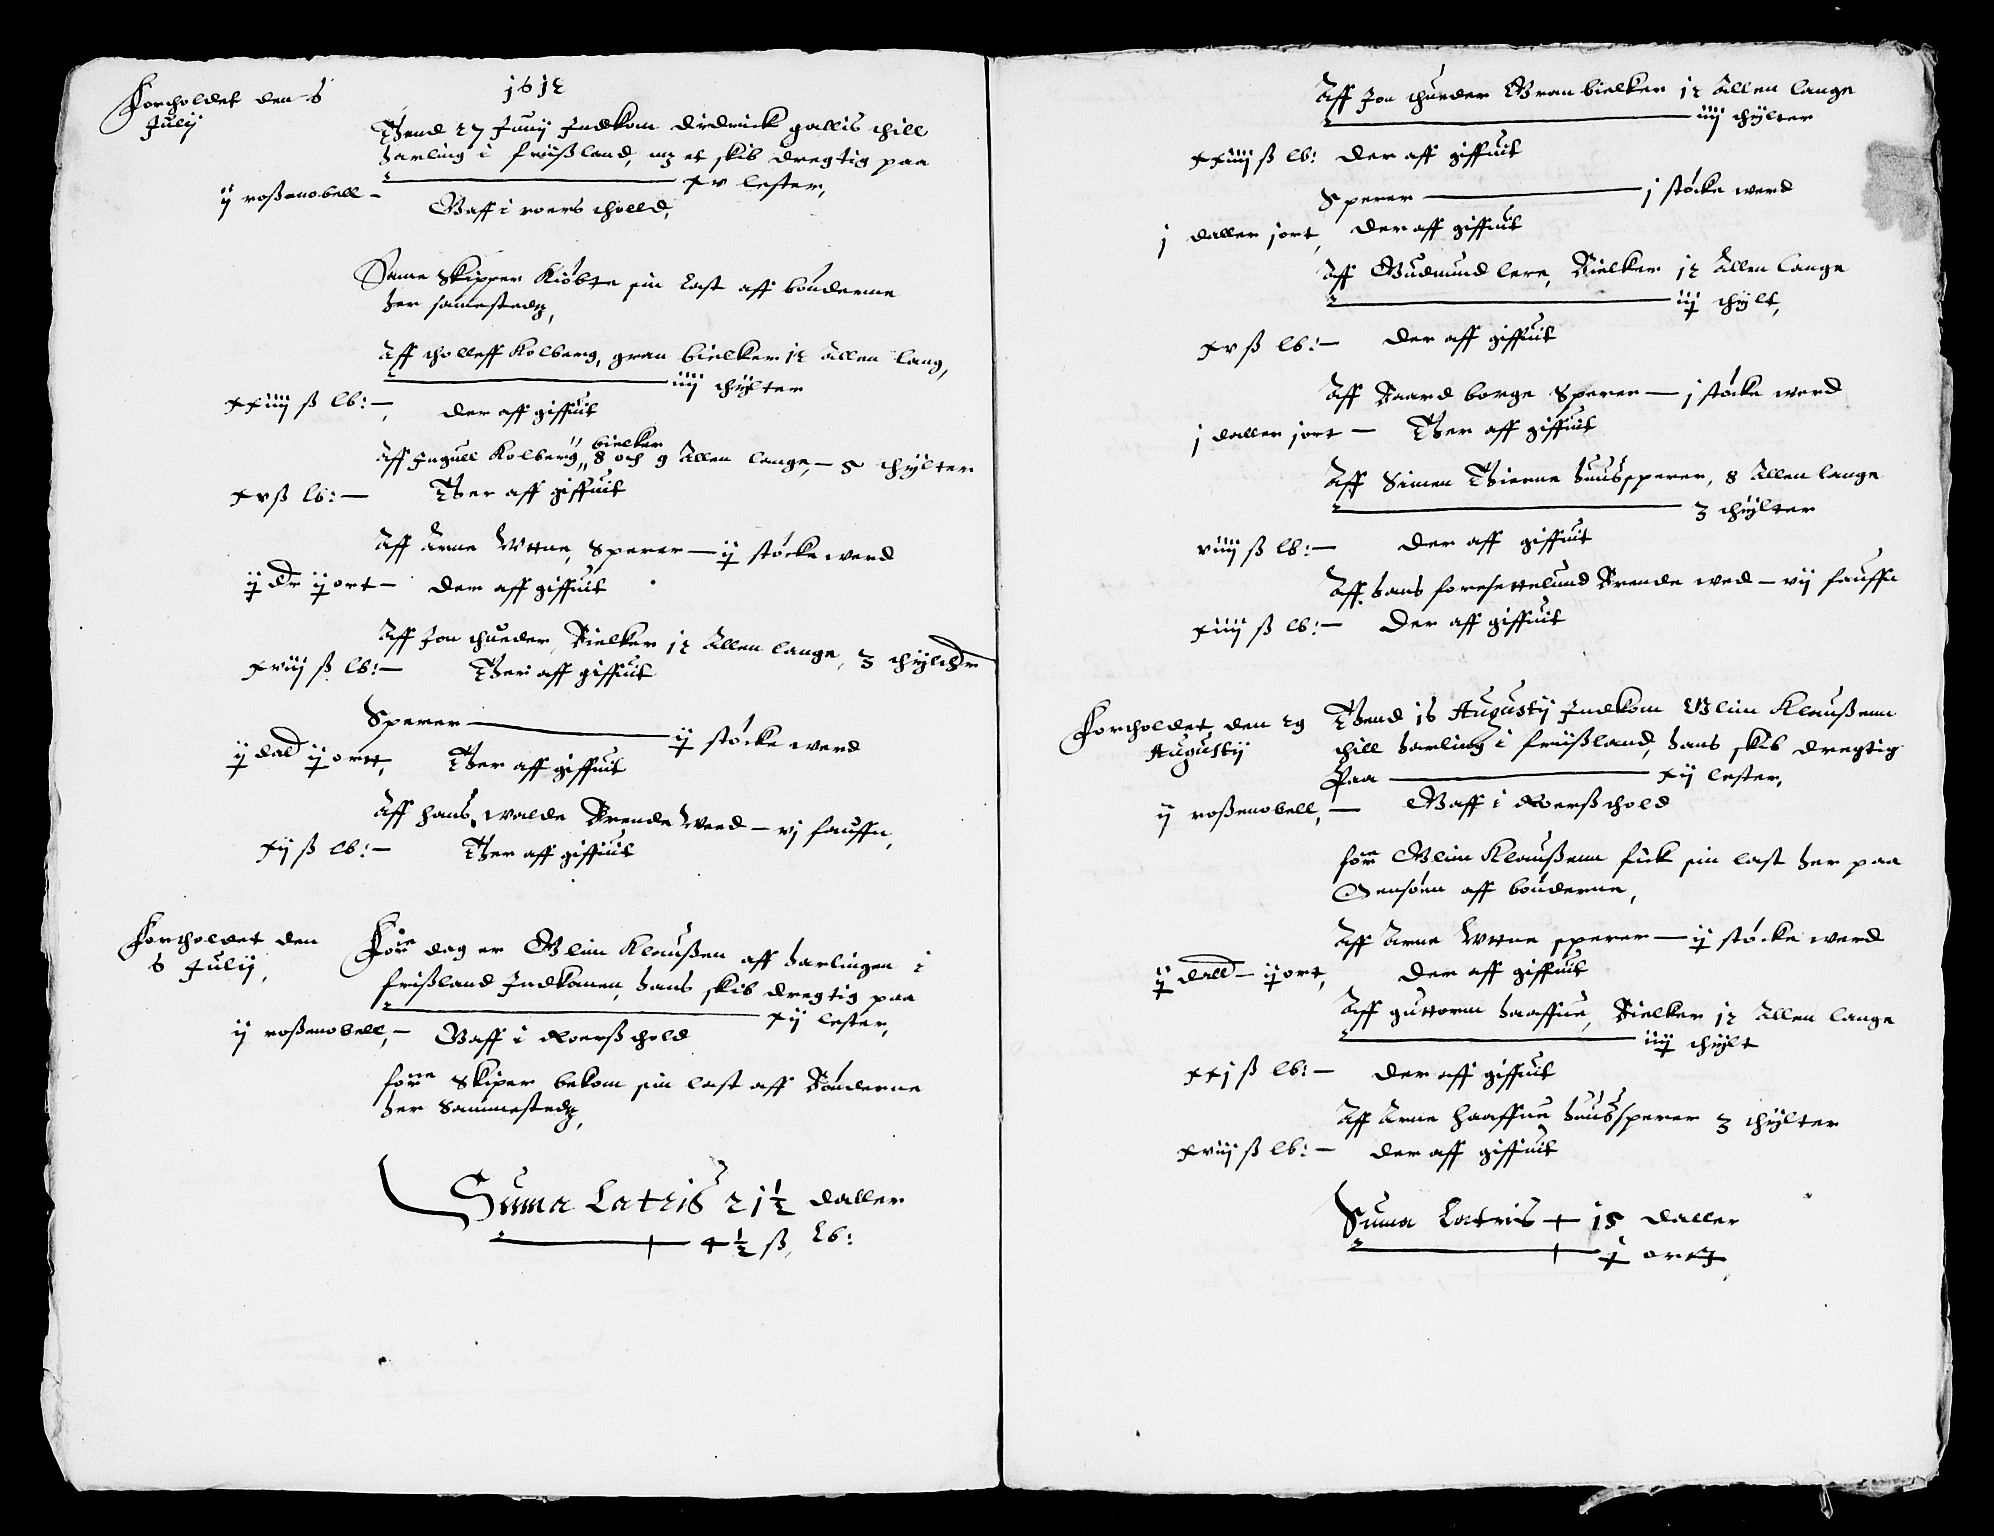 1612
Fortholdet den 6
Julij
Thend 27 Junij Indkom Didrick gallis thill
harling i friißland, mz et skib dregtig paa
xv lester,
ij roßenobell – Gaff i roers tholld,
Same Skipper Kiøbte sin Last aff bønderne
her samestedz,
Aff tholleff Kolberg, gran bielker 12 Allen lang,
iiij thylter
xxiiij ß lb: – der aff giffuit
bielker
Aff Ingull Kolberg, 8 och 9 Allen lange, – 5 thylter
xv ß lb: – Ther aff giffuit
Aff Arne Wttne, Sperer – ij støcke werd
ij dr ij ort – der aff giffuit
Aff Jon thueder, Bielker 12 Allen lange, 3 thylther
xviij ß lb: – Ther aff giffuit
Sperer – ij støcke werd
ij dald ij ortt, Ther aff giffuit
Aff hans walde Brende Weed – vj fauffn,
xij ß lb: – Ther aff giffuit
Fortholdet den
6 Julij,
Forne dag er Willim Klaußen aff harlingen i
frißland Indkomen, hans skib dregtig paa
xij lester,
ij roßenobell, – Gaff i Roerß thold
forne Skiper bekom sin last aff Bønderne
her Sammestedz,
Suma Latris 21½ daller
4½ ß, Lb:
Aff Jon thueder Gran bielker 12 Allen lange
iiij thylter
xxiiij ß lb: der aff giffuit
Sperer – j støcke werd
j daller j ort, der aff giffuit
Aff Gudmund lere, Bielker 12 Allen lange
iij thylt,
xv ß lb: – der aff giffuit
Aff Baard borge Sperer – j støcke werd
j daller j ort – Ther aff giffuit
Aff Simen Thierne huussperer, 8 Allen lange
3 thylter
viiij ß lb: – der aff giffuit
Aff hans forsettelund Brende wed – vij fauffn
xiiij ß lb: – der aff giffuit
Fortholdet, den 29
Augustij
Thend 16 Augustij Indkom Willim Klaußenn
thill harling i friißland, hans skib dregtig
Paa – xij lester,
ij roßenobell, – Gaff i Roerß thold
forne Willim Klaußenn fick sin last her paa
aff bønderne,
Aff Arne Wttne sperer – ij støcke werd
ij dald – ij ort, der aff giffuit
Aff guttorm haaffue, Bielker 12 Allen lange
iiij thylt
xxj ß lb: – der aff giffuit
Aff Arne Haaffue huussperer 3 thylter
xviij ß lb: – der aff giffuit
Suma Latris 15 daller
j ortt,